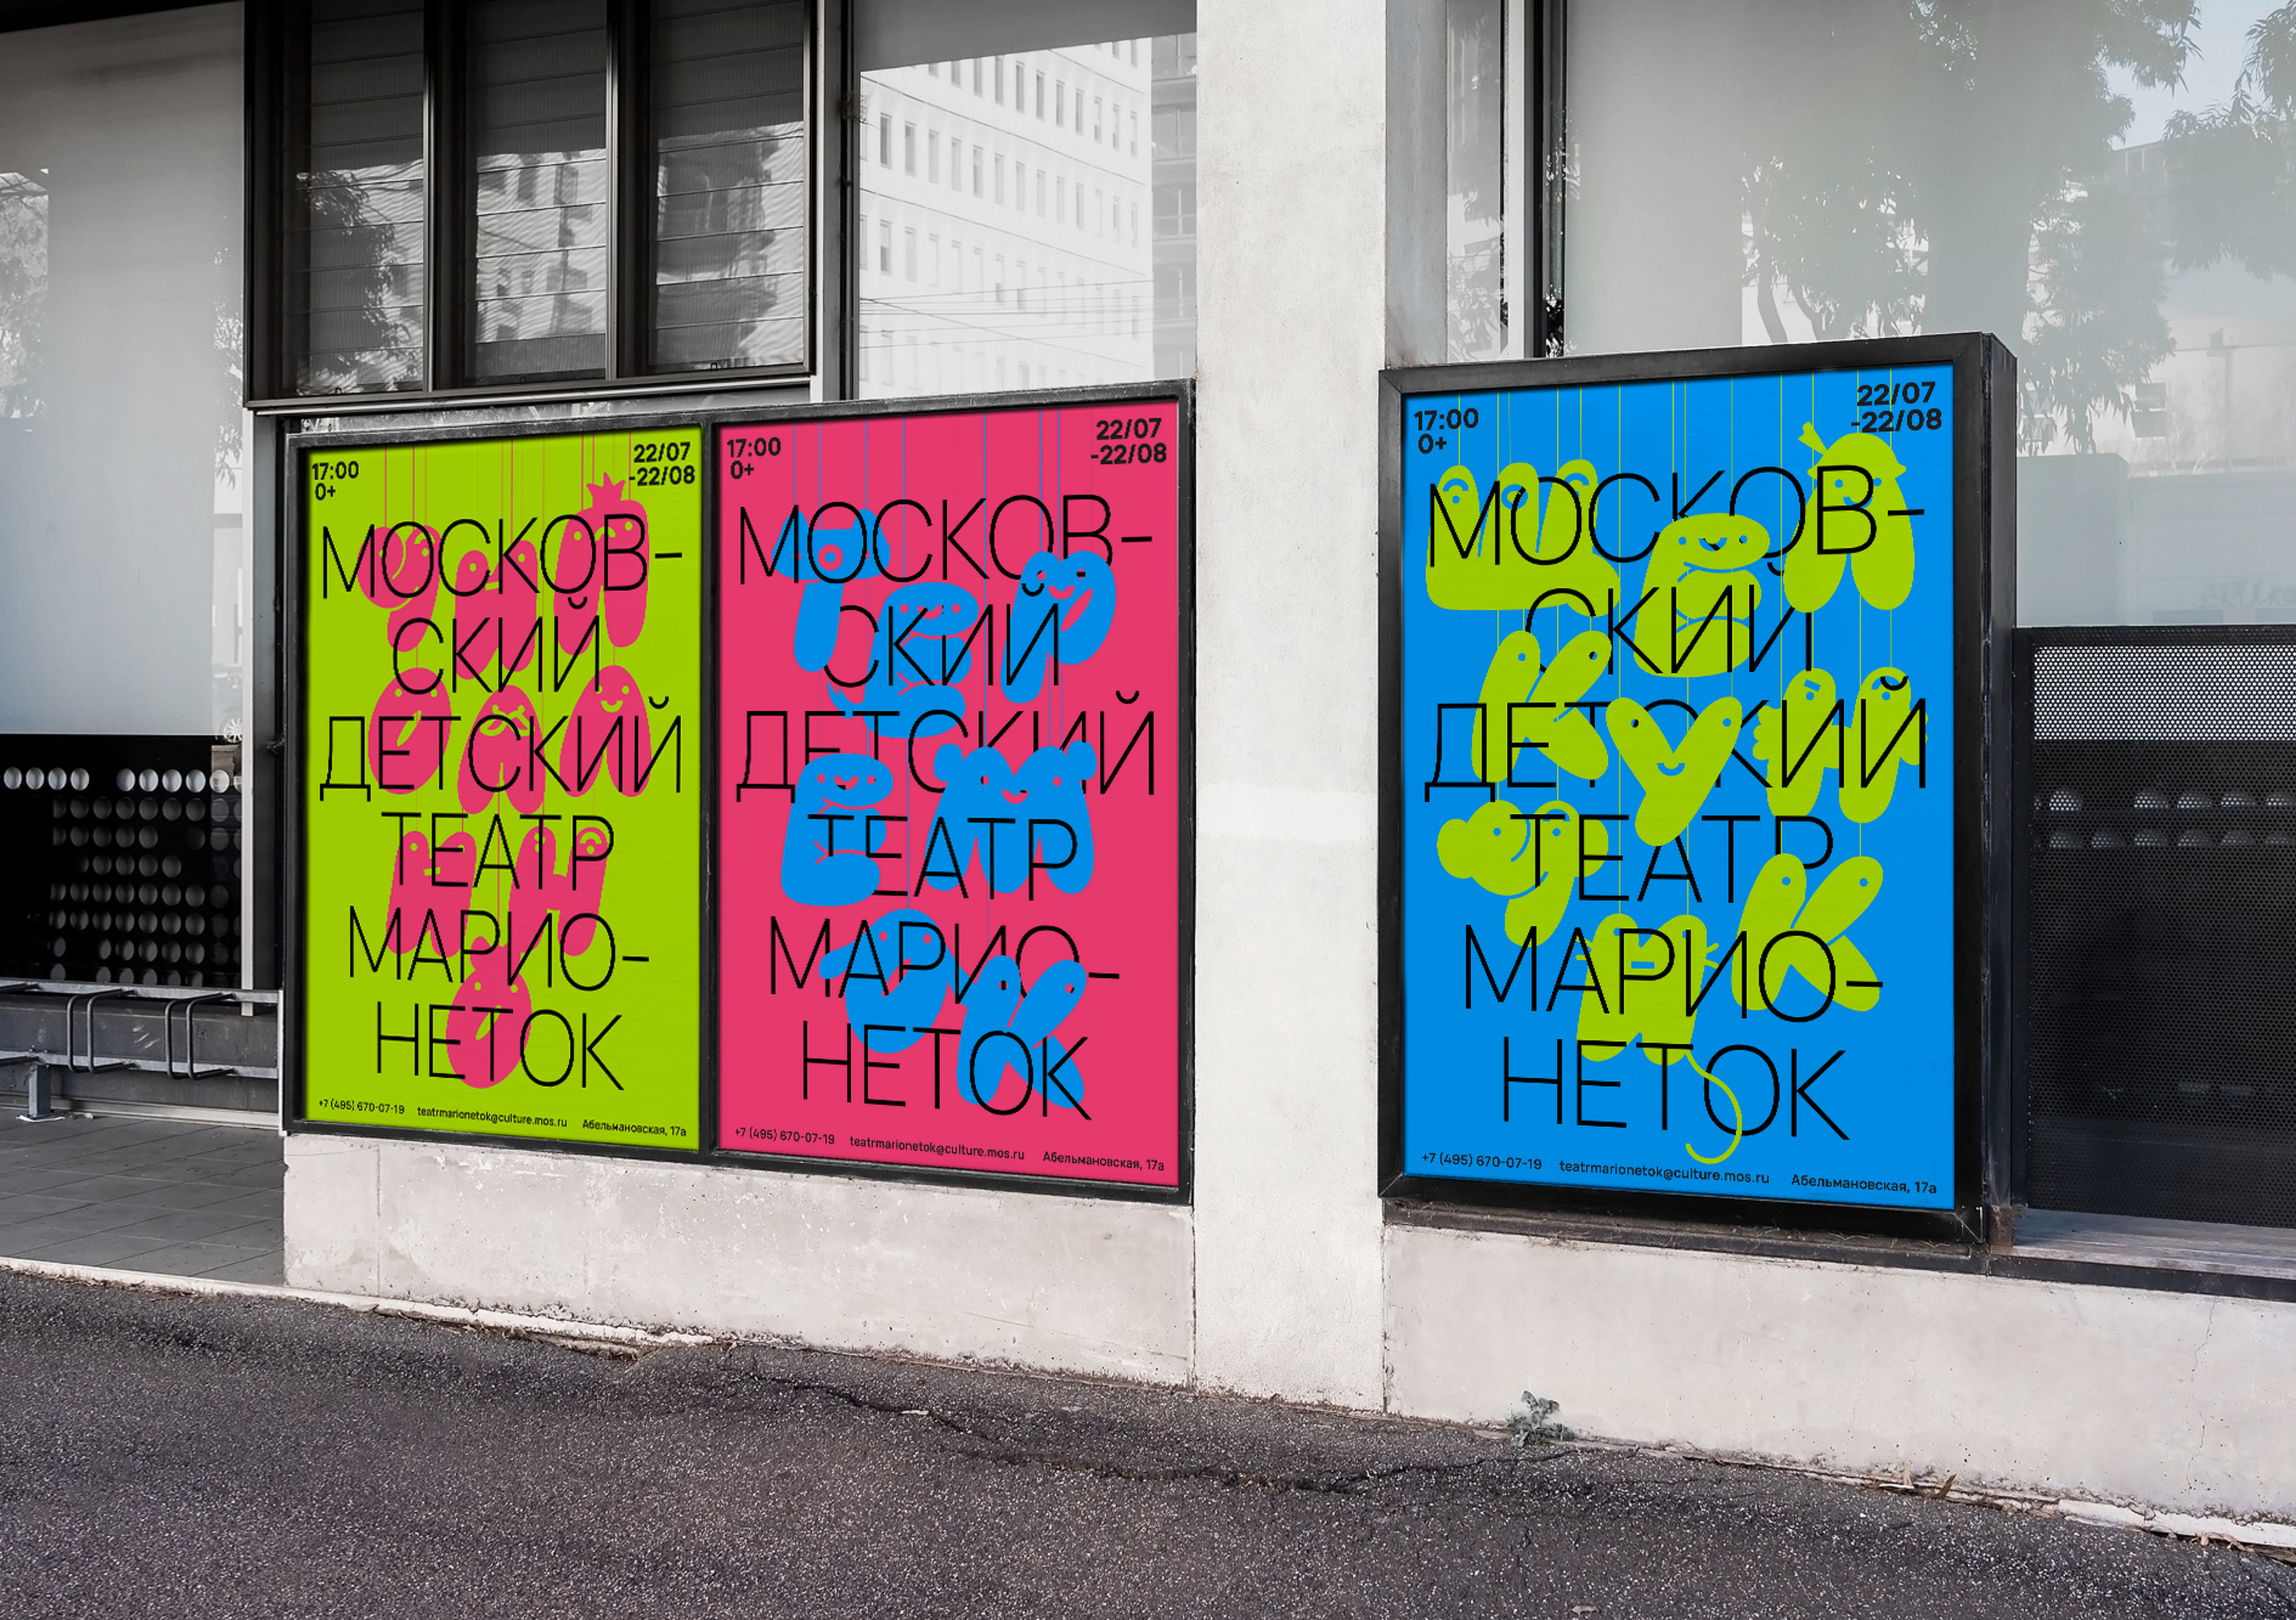 17:00
0+
22/07
-22/08
МОСКОВ-
СКИЙ
ДЕТСКИЙ
ТЕАТР
МАРИО-
НЕТОК
ЧИП
ОЛЛ
ИН
О
+7 (495) 670-07-19 teatrmarionetok@culture.mos.ru Абельмановская, 17а
17:00
0+
22/07
-22/08
МОСКОВ-
СКИЙ
ДЕТСКИЙ
ТЕАТР
МАРИО-
НЕТОК
ТЕР
ЕМ
ОК
+7 (495) 670-07-19 teatrmarionetok@culture.mos.ru Абельмановская, 17а
17:00
0+
22/07
-22/08
МОСКОВ-
СКИЙ
ДЕТСКИЙ
ТЕАТР
МАРИО-
НЕТОК
ЩЕЛ
КУН
ЧИК
+7 (495) 670-07-19 teatrmarionetok@culture.mos.ru Абельмановская, 17а